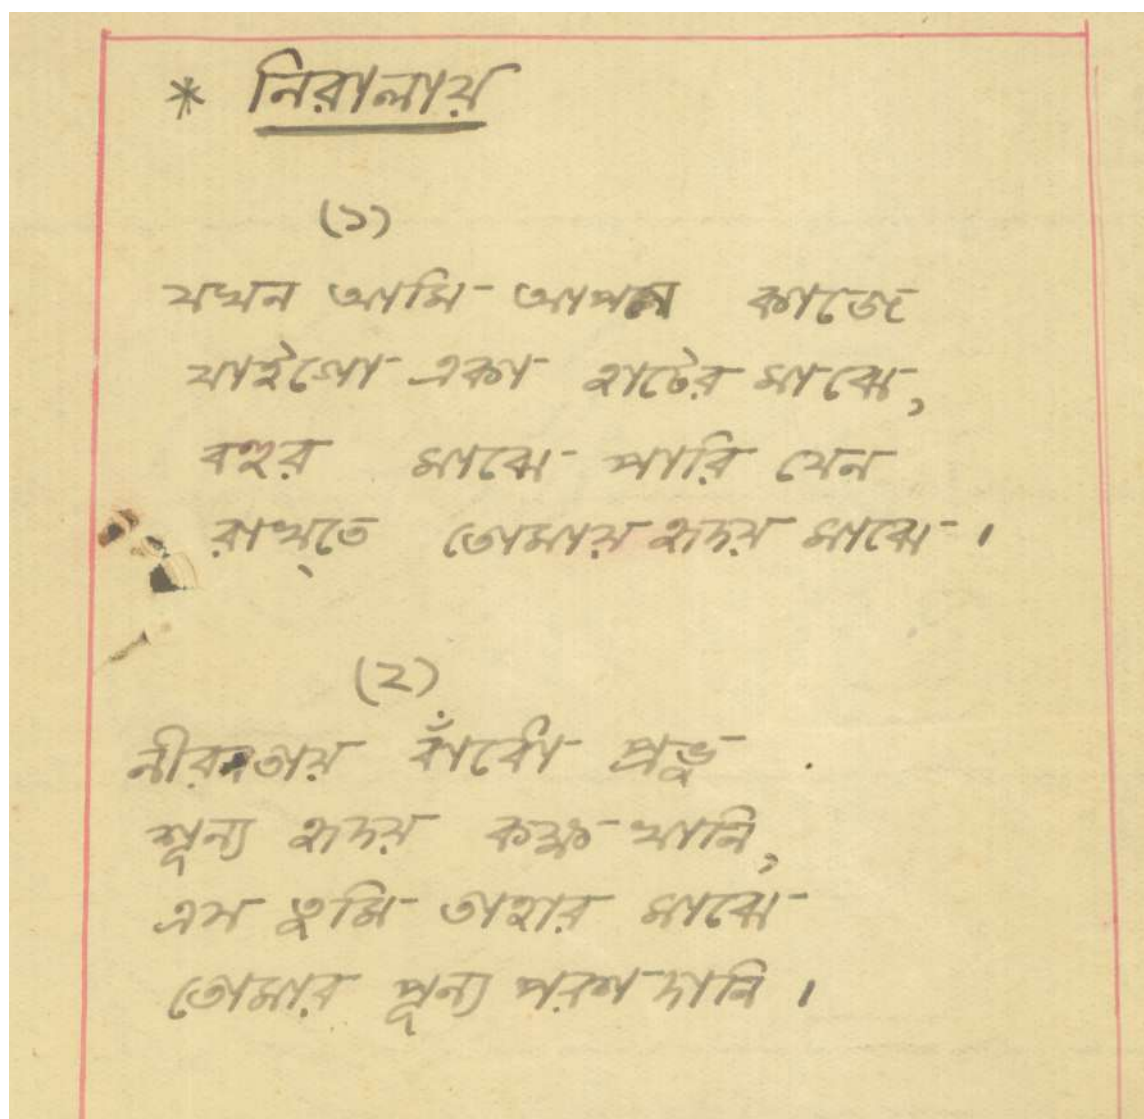 * নিরালায়
(১)
যখন আমি আপন কাজে
যাইগো একা হাটের মাঝে,
বহুর মাঝে পারি যেন
রাখ্তে তোমায় হৃদয় মাঝে।
(২)
নীরবতায় কাঁদে প্রভু
শূন্য হৃদয় কক্ষ খানি,
এস তুমি তাহার মাঝে
তোমার পূন্য পরশ দানি।